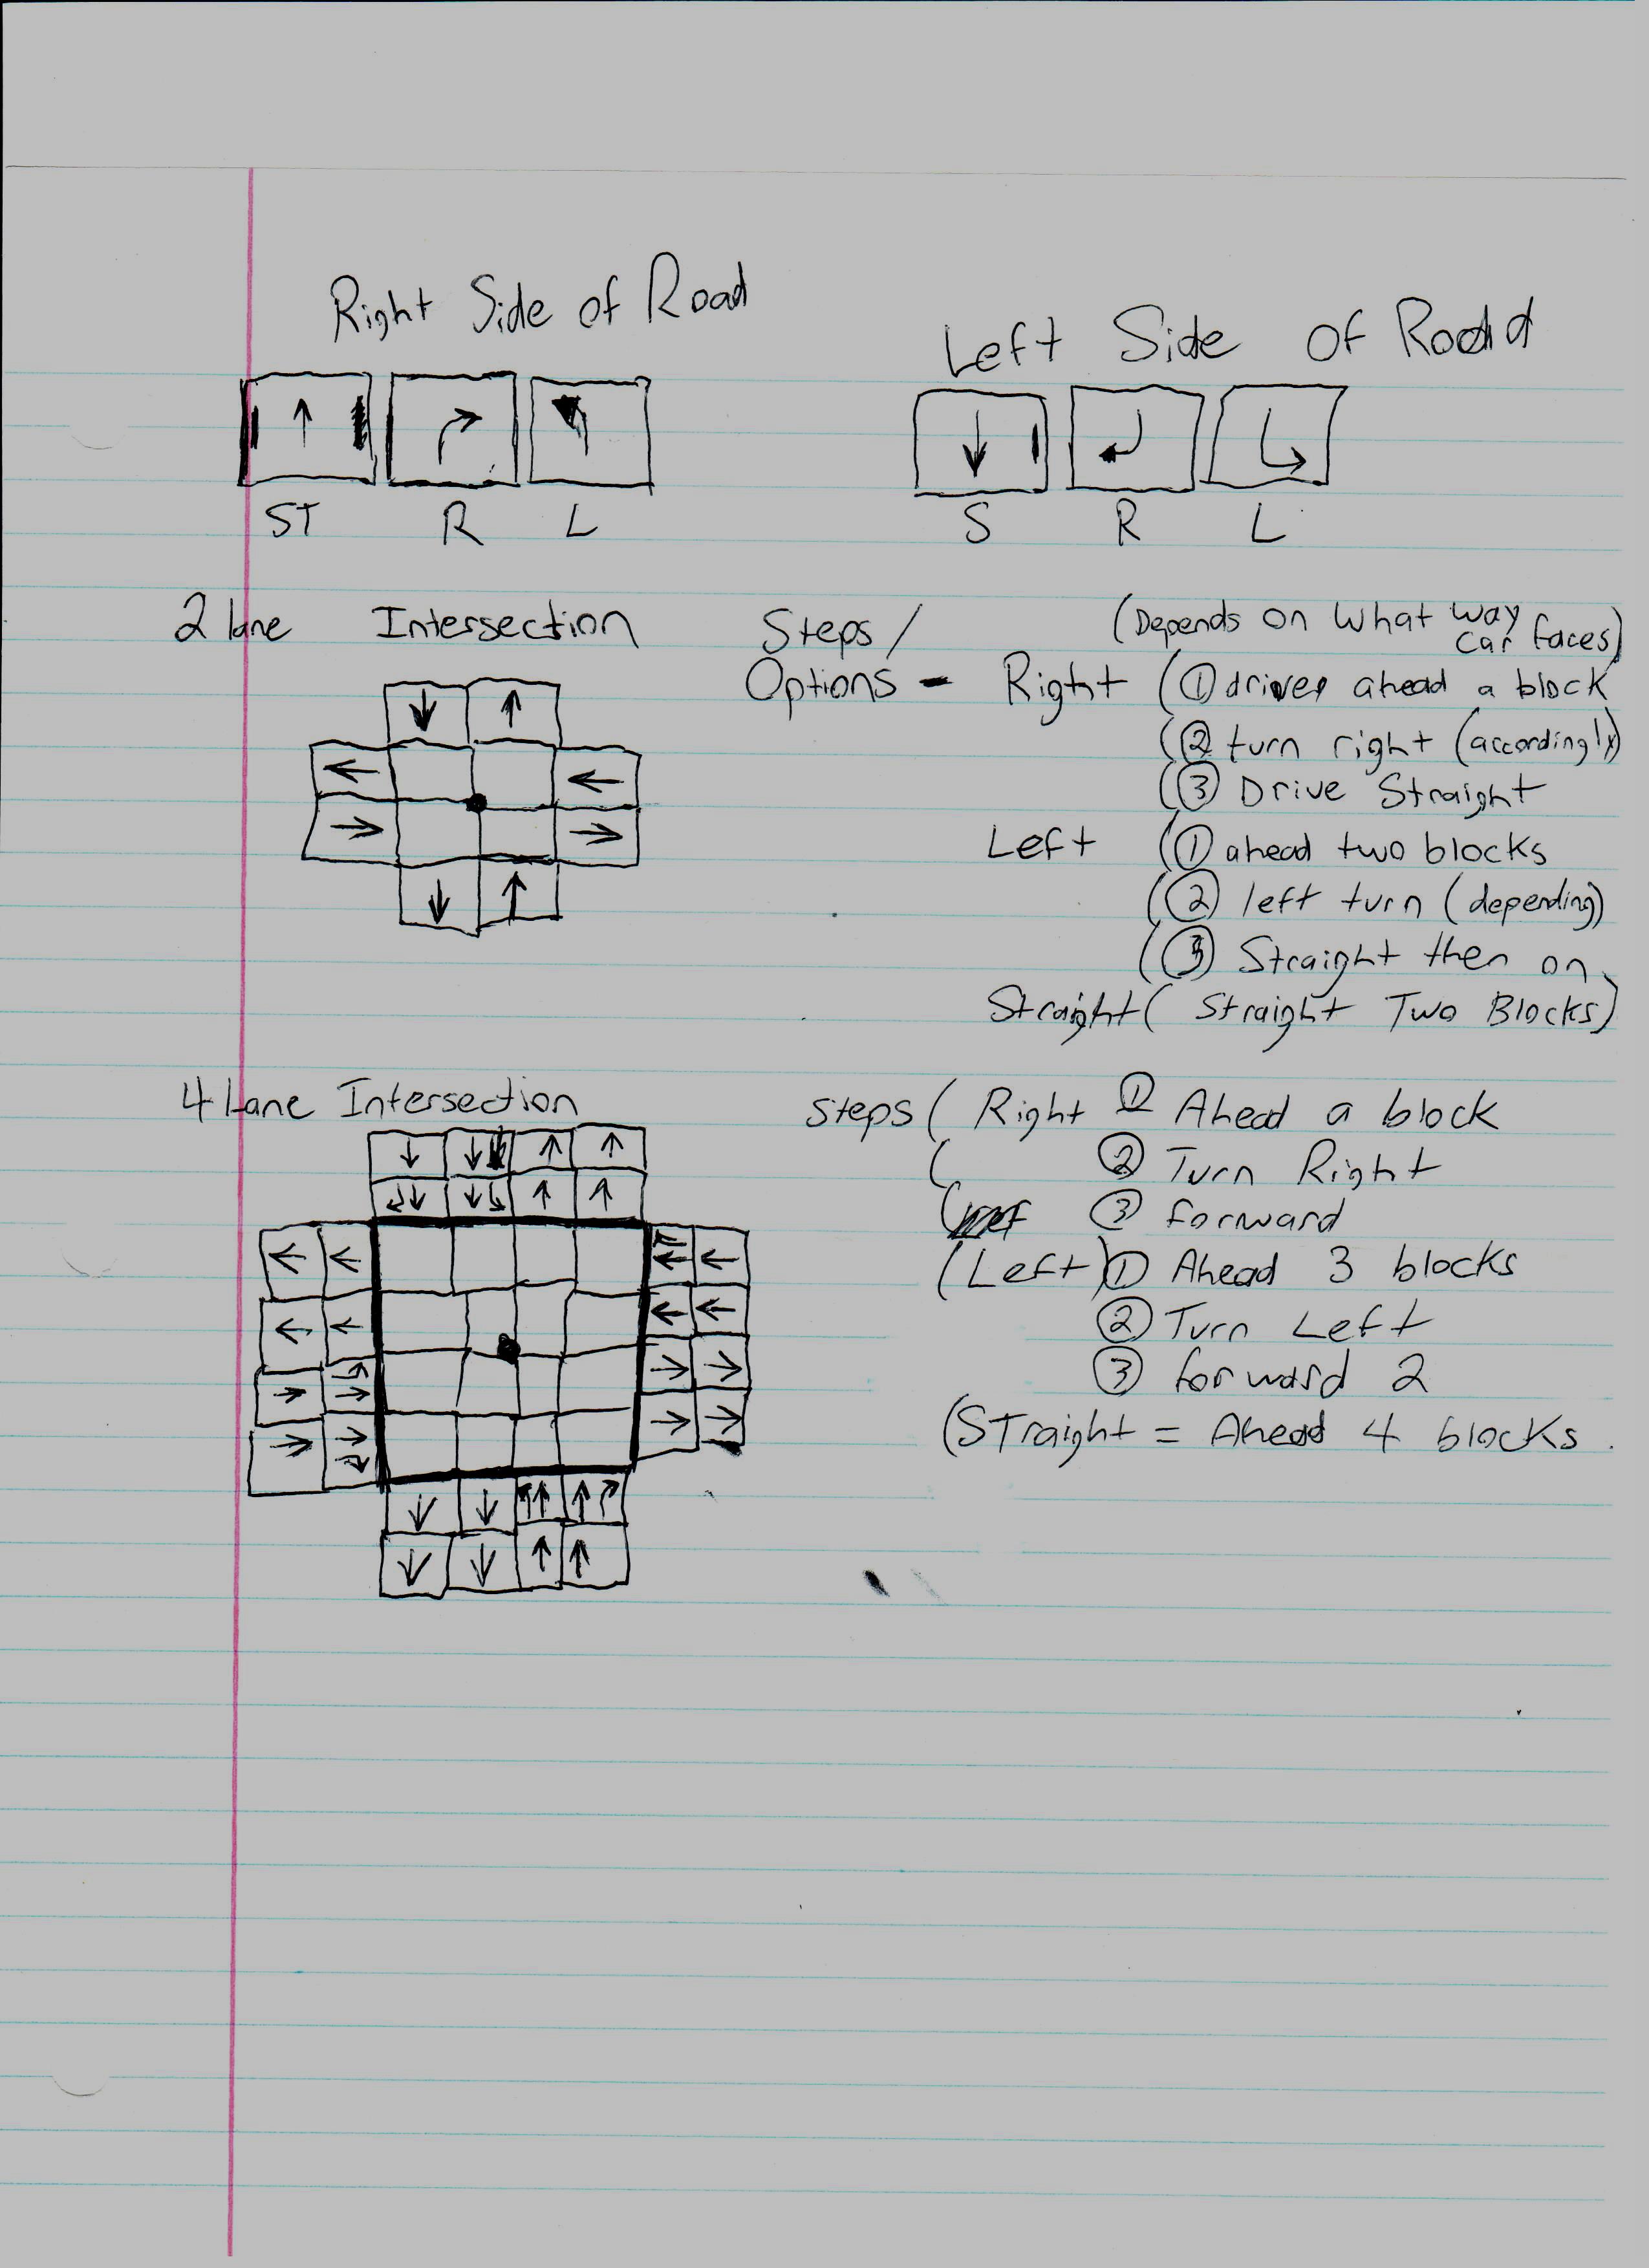 Right Side of Road
Left Side Of Road
ST R L
S R L
2 lane Intersection
Steps/ (Depends on What way car faces)
Options - Right (① drives ahead a block
(② turn right (accordingly)
(③ Drive Straight
Left (① ahead two blocks
(② left turn (depending)
(③ Straight then on
Straight ( Straight Two Blocks)
4 Lane Intersection
Steps ( Right ① Ahead a block
( ② Turn Right
( ③ forward
(Left) ① Ahead 3 blocks
② Turn Left
③ forward 2
(STraight = Ahead 4 blocks.